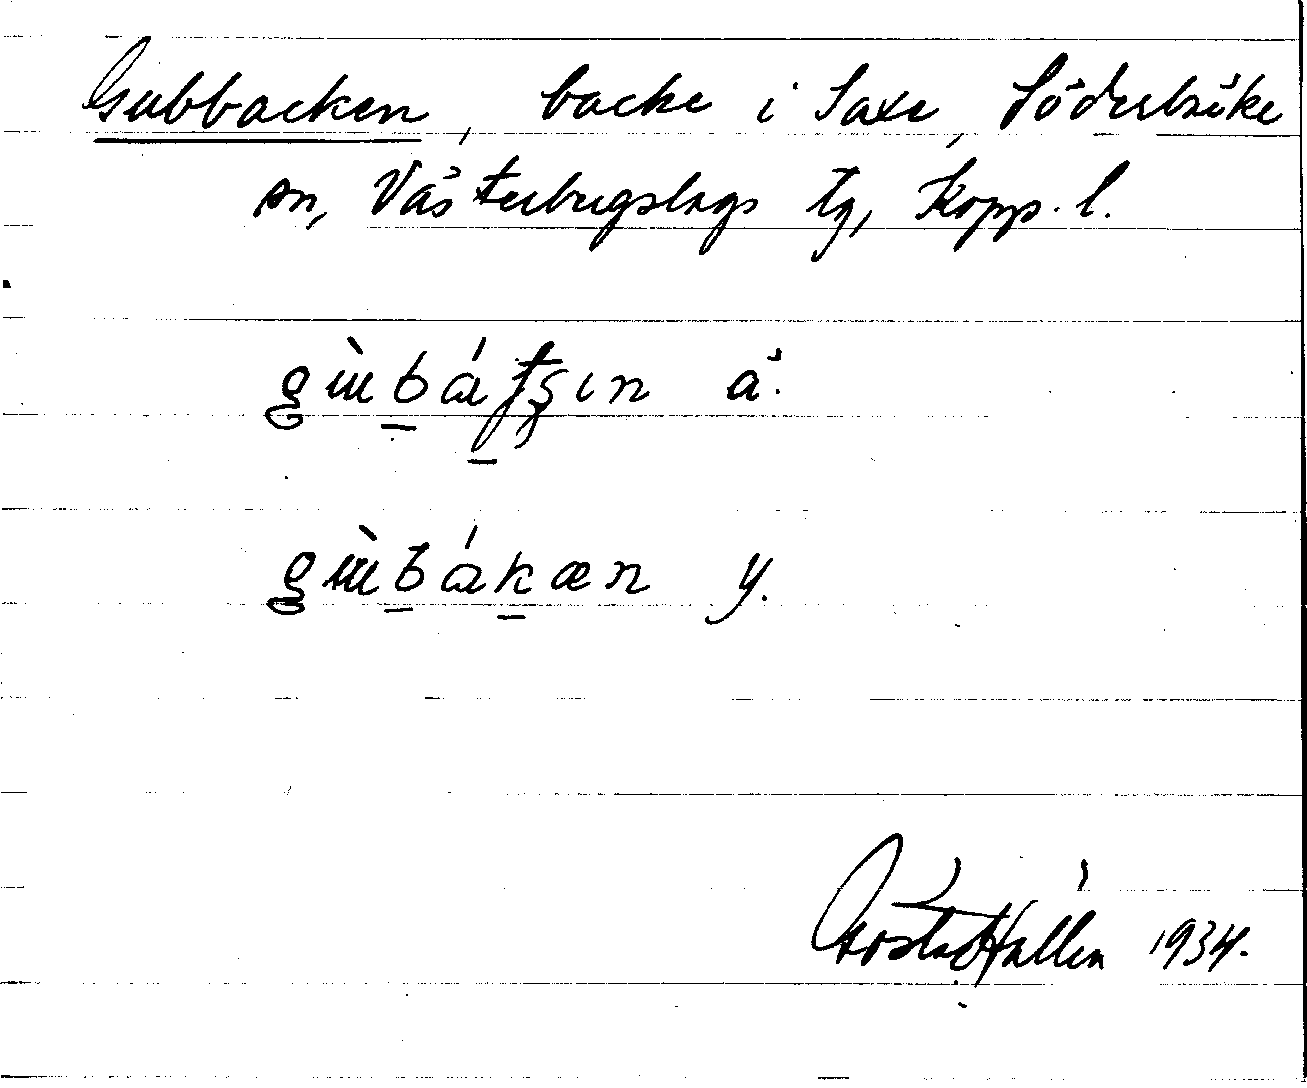 Gubbacken, backe i Saxe, Söderbärke
sn, Västerbergslags tg, Kopp. l.
å.
y.
Gösta Hallén 1934.